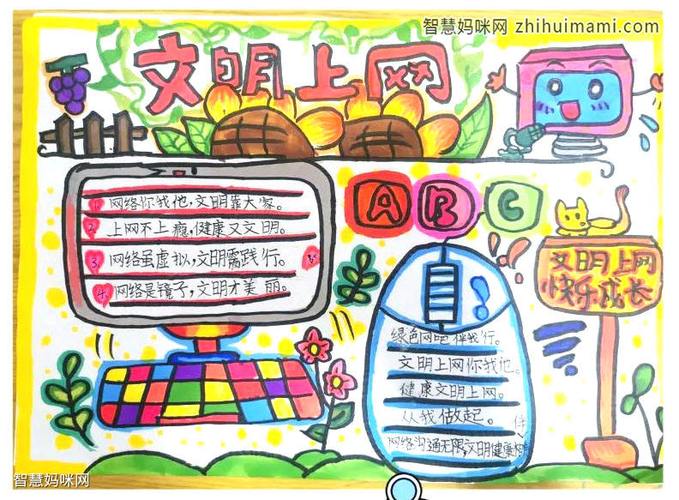 智慧妈咪网 zhihuimami.com
文明上网
A B C
1 网络你我他，文明靠大家。
2 上网不上瘾，健康又文明。
3 网络虽虚拟，文明需践行。
4 网络是镜子，文明才美丽。
文明上网
快乐成长
绿色网吧伴我行。
文明上网你我他。
健康文明上网。
从我做起。
网络沟通无限，文明健康相伴
智慧妈咪网